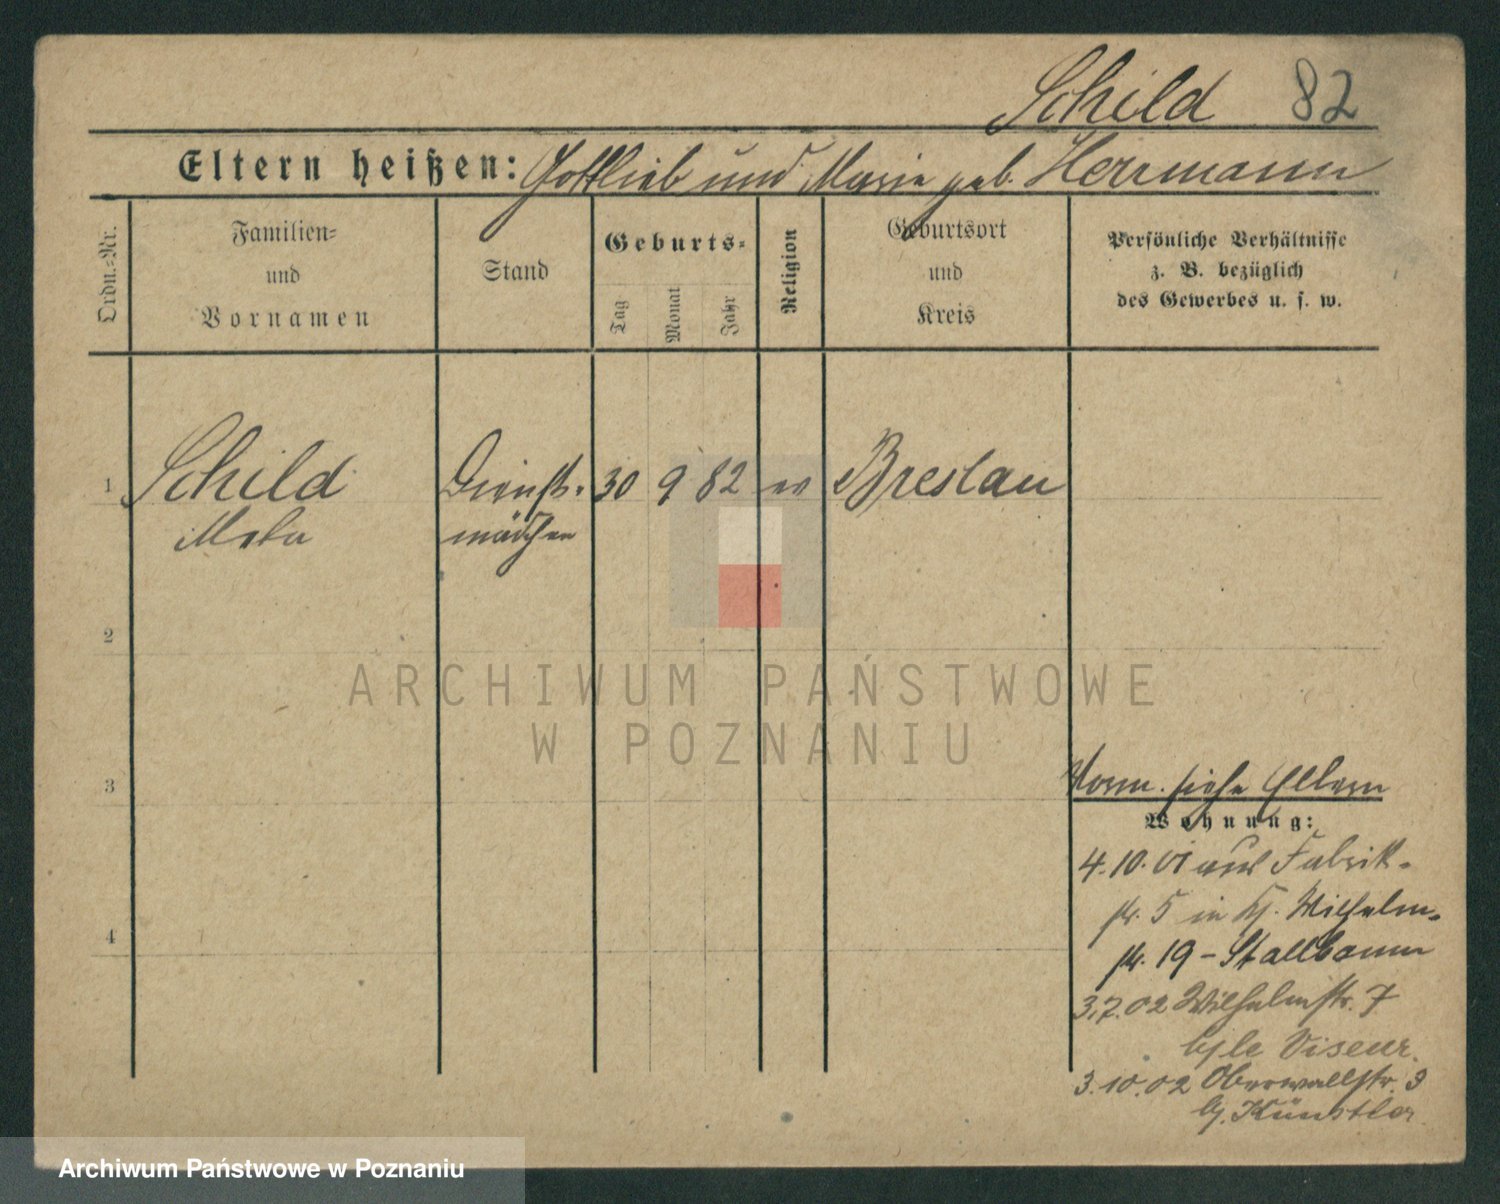 Schild 82
Eltern heißen: Gottlieb und Marie geb. Herrmann
Ordn.-Nr.
Familien-
und
Vornamen
Stand
Geburts-
Tag
Monat
Jahr
Religion
Geburtsort
und
Kreis
Persönliche Verhältnisse
z. B. bezüglich
des Gewerbes u. s. w.
1 Schild Dienst- 30 9 82 ev Breslau
Meta mädchen
2
ARCHIWUM PAŃSTWOWE
W POZNANIU
3
Vorm. siehe Eltern
Wohnung:
4.10.01 aus Fabrik-
str. 5 in Hj. Wilhelm-
4
str. 19 - Stallbaum
3.7.02 Wilhelmstr. 7
Viseur.
3.10.02 Oberwallstr. 3
bj. Künstler
Archiwum Państwowe w Poznaniu